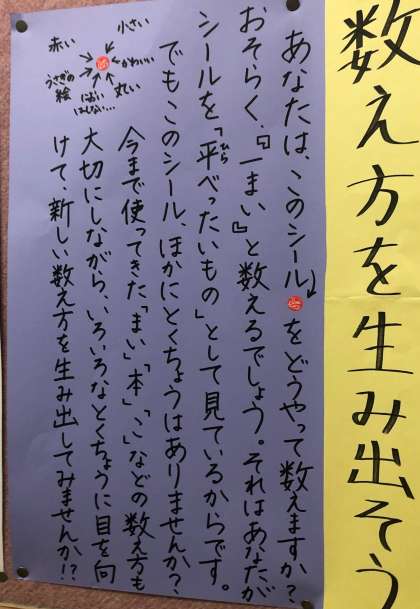 数え方を生み出そう
あなたは、このシール↓をどうやって数えますか？
おそらく、『一まい』と数えるでしょう。それはあなたが
シールを「平べったいもの」として見ているからです。
ひら
でもこのシール、ほかにとくちょうはありませんか？
今まで使ってきた「まい」「本」「こ」などの数え方も
大切にしながら、いろいろなとくちょうに目を向
けて、新しい数え方を生み出してみませんか!?
小さい
赤い
かわいい
丸い
においはしない…
うさぎの絵